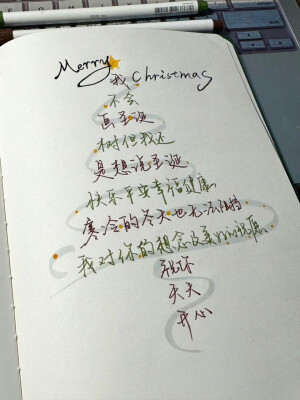 Merry Christmas
我
不会
画圣诞
树但我还
是想说圣诞
快乐平安幸福健康
寒冷的冬天也无法阻挡
我对你的想念及美好祝愿
祝你
天天
开心